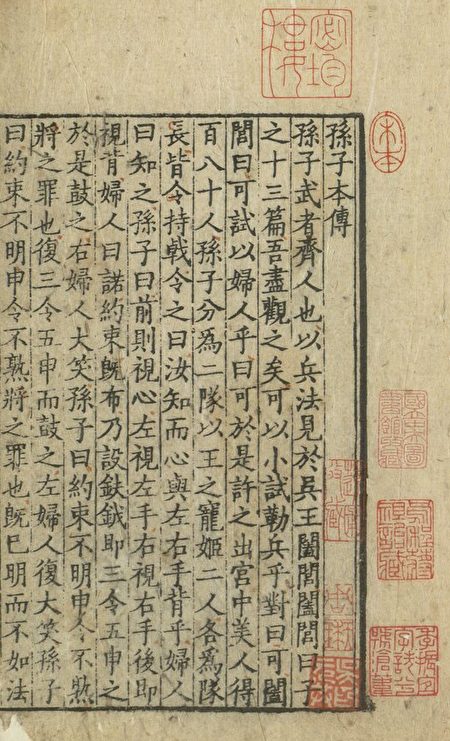 密均樓
宋本
孫子本傳
孫子武者齊人也以兵法見於吳王闔閭闔閭曰子
之十三篇吾盡觀之矣可以小試勒兵乎對曰可闔
閭曰可試以婦人乎曰可於是許之出宮中美人得
百八十人孫子分爲二隊以王之寵姬二人各爲隊
長皆令持戟令之曰汝知而心與左右手背乎婦人
曰知之孫子曰前則視心左視左手右視右手後即
視背婦人曰諾約束旣布乃設鈇鉞即三令五申之
於是鼓之右婦人大笑孫子曰約束不明申令不熟
將之罪也復三令五申而鼓之左婦人復大笑孫子
曰約束不明申令不熟將之罪也旣已明而不如法